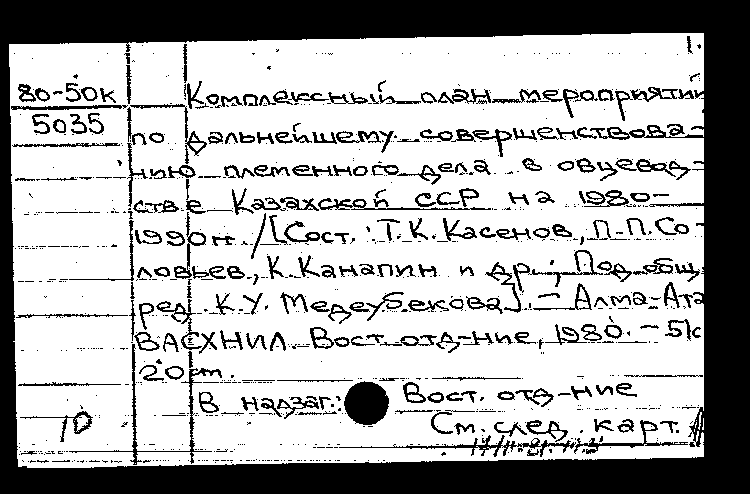 1.
80-50к Комплексный план мероприятий
5035 по дальнейшему совершенствова-
нию племенного дела в овцевод-
стве Казахской ССР на 1980-
1990гг. /[Сост.: Т.К. Касенов, П.П. Со-
ловьев, К. Канапин и др.; Под общ.
ред. К.У. Медеубекова]. - Алма-Ата
ВАСХНИЛ. Вост. отд-ние, 1980. - 51с
20см.
В надзаг.: Вост. отд-ние
10 См. след. карт.